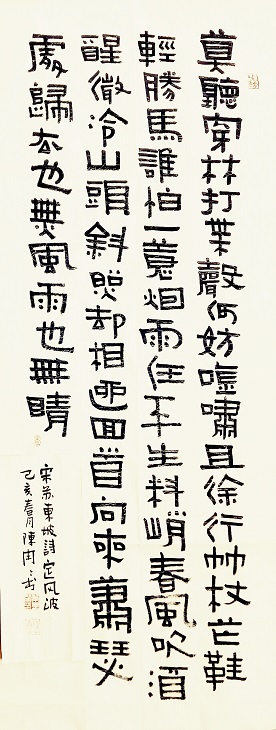 莫聽穿林打葉聲何妨唫嘯且徐行竹杖芒鞋
輕勝馬誰怕一蓑烟雨任平生料峭春風吹酒
醒微冷山頭斜照却相迎回首向來蕭瑟
處歸去也無風雨也無晴
宋苏東坡詩定风波
己亥春月陳